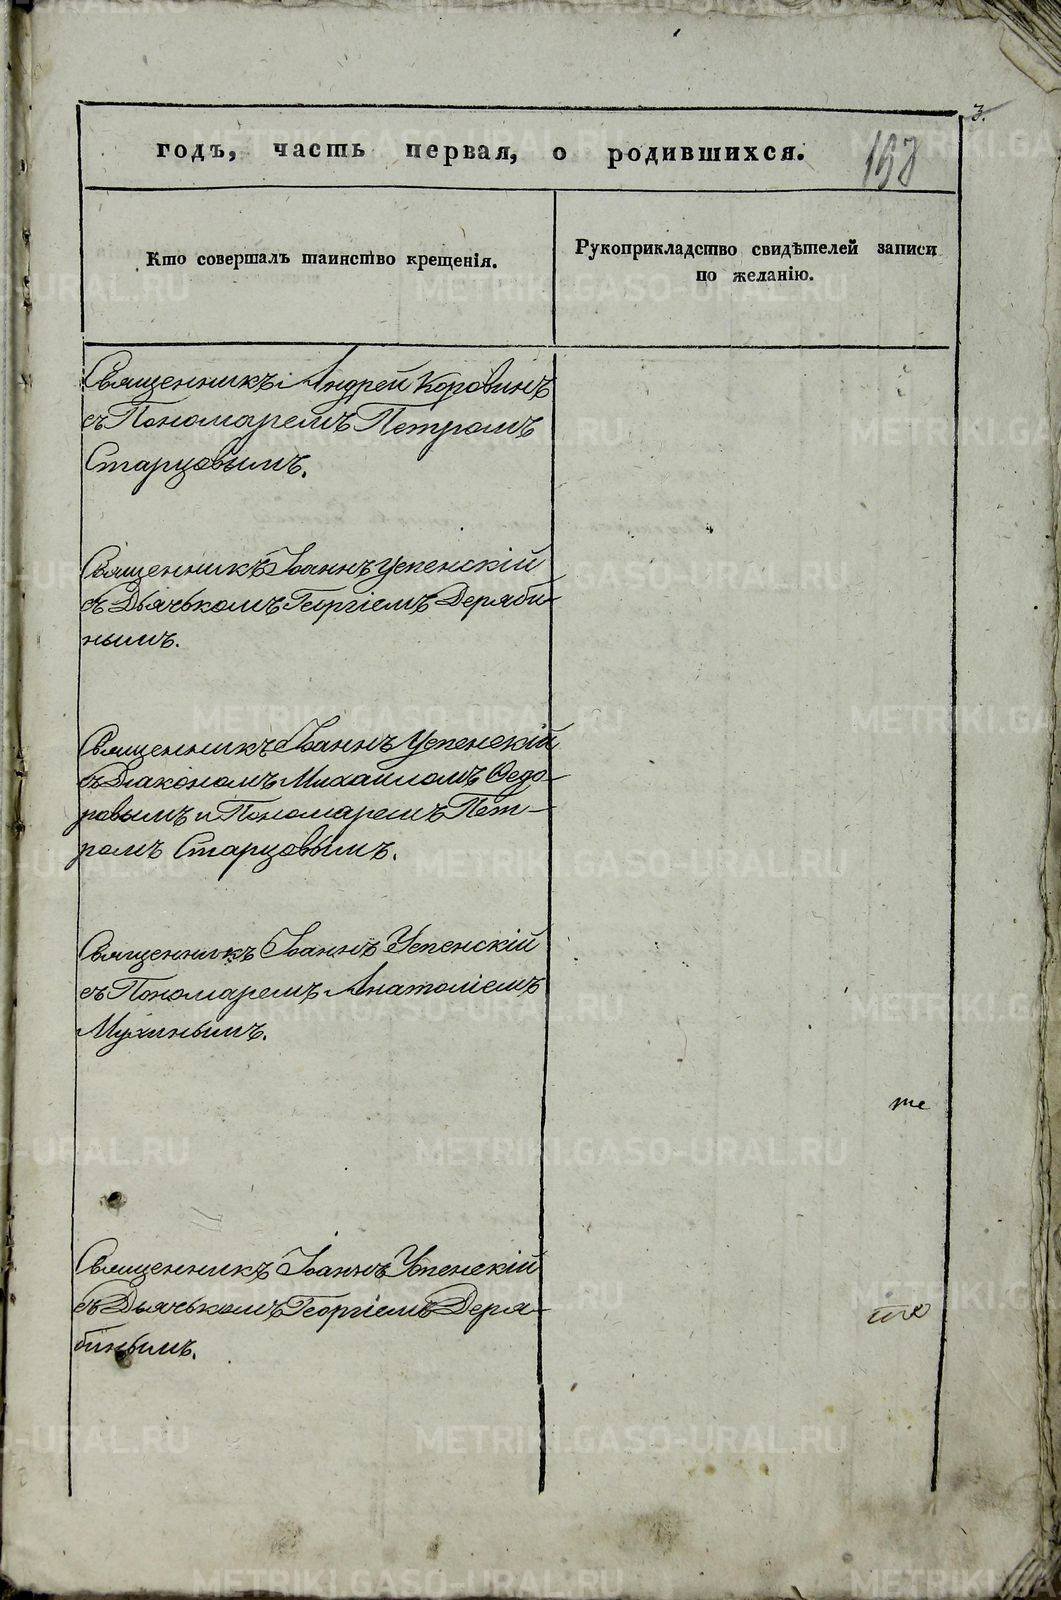 3.
годъ, часть первая, о родившихся.
198
Кто совершалъ таинство крещенія.
Рукоприкладство свидѣтелей записи
по желанію.
Священникъ Андрей Коровинъ
съ Пономаремъ Петромъ
Старцовымъ.
Священникъ Іоаннъ Успенскій
съ Дьячькомъ Георгіемъ Деряби-
нымъ.
Священникъ Іоаннъ Успенскій
съ Діакономъ Михаиломъ Ѳедо-
ровымъ и Пономаремъ Пет-
ромъ Старцовымъ.
Священникъ Іоаннъ Успенскій
съ Пономаремъ Анатоліемъ
Мухинымъ.
те
Священникъ Іоаннъ Успенскій
съ Дьячькомъ Георгіемъ Деря-
бинымъ.
METRIKI.GASO-URAL.RU